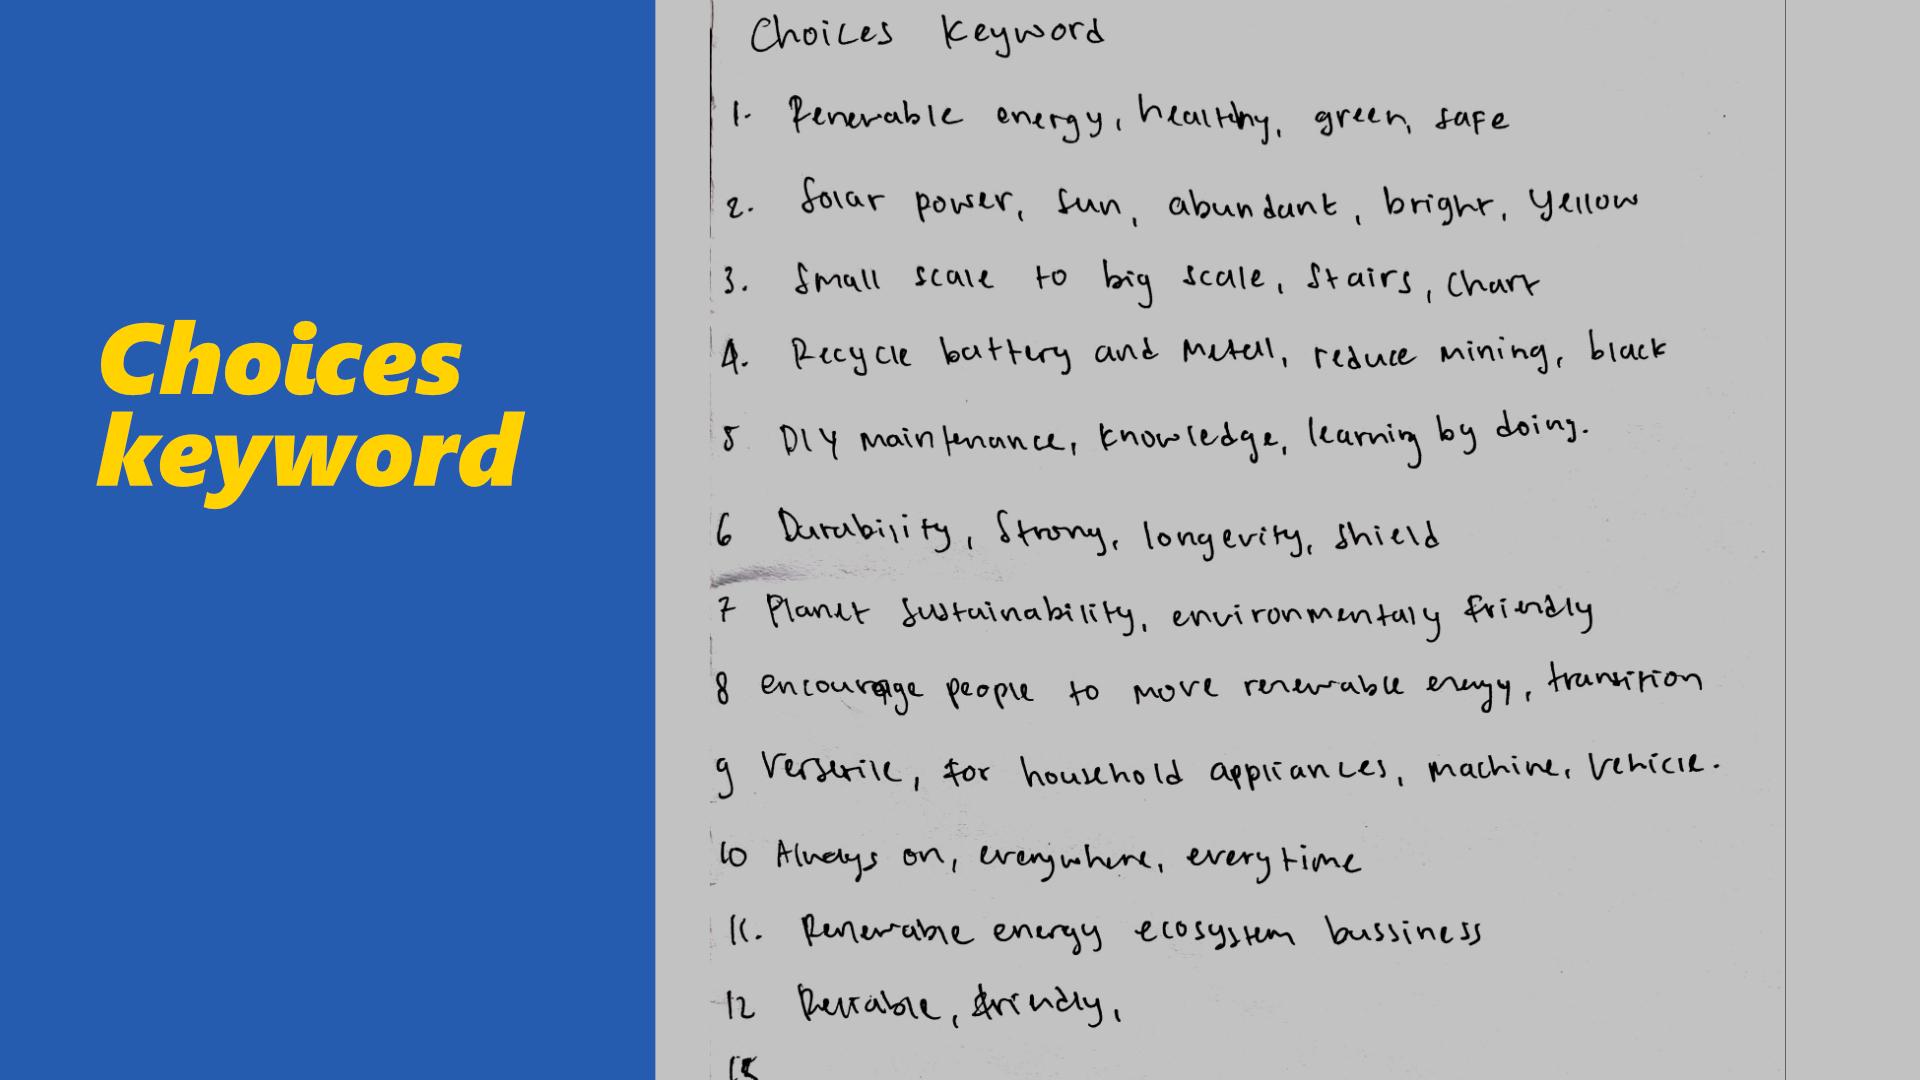 Choices
keyword
Choices Keyword
1. Renewable energy, healthy, green, safe
2. Solar power, sun, abundant, bright, yellow
3. Small scale to big scale, Stairs, Chart
4. Recycle battery and Metall, reduce mining, black
5 DIY maintenance, knowledge, learning by doing.
6 Durability, Strong, longevity, shield
7 Planet Sustainability, environmentaly friendly
8 encourage people to move renewable energy, transition
9 Versetile, for household appliances, machine, vehicle.
10 Always on, everywhere, everytime
11. Renewable energy ecosystem bussiness
12 Reliable, friendly,